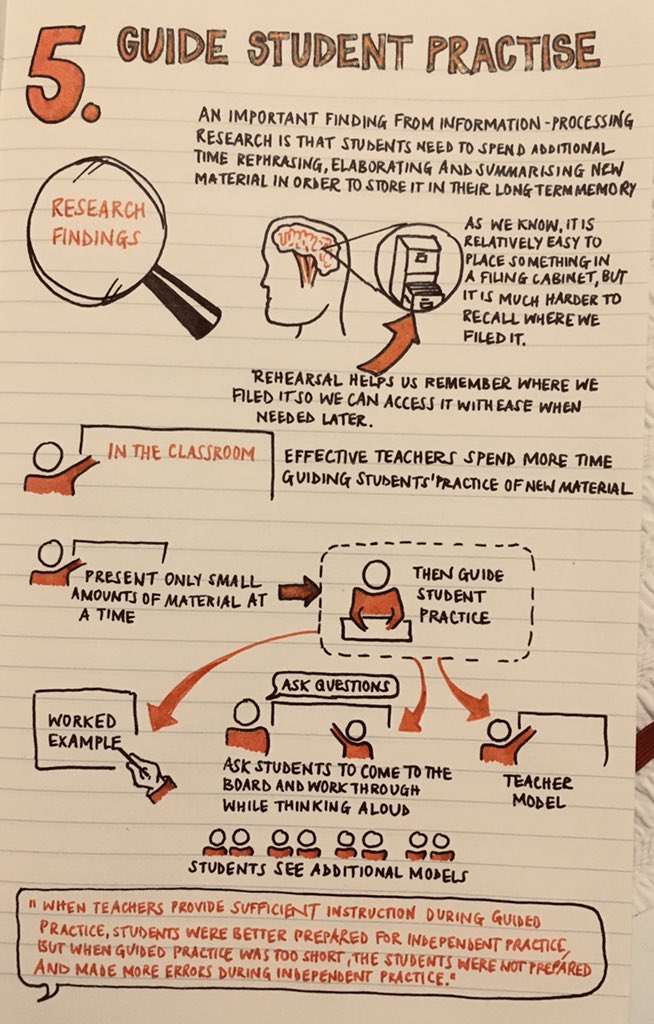 5. GUIDE STUDENT PRACTISE
AN IMPORTANT FINDING FROM INFORMATION-PROCESSING
RESEARCH IS THAT STUDENTS NEED TO SPEND ADDITIONAL
TIME REPHRASING, ELABORATING AND SUMMARISING NEW
MATERIAL IN ORDER TO STORE IT IN THEIR LONG TERM MEMORY
RESEARCH
FINDINGS
AS WE KNOW, IT IS
RELATIVELY EASY TO
PLACE SOMETHING IN
A FILING CABINET, BUT
IT IS MUCH HARDER TO
RECALL WHERE WE
FILED IT.
REHEARSAL HELPS US REMEMBER WHERE WE
FILED IT SO WE CAN ACCESS IT WITH EASE WHEN
NEEDED LATER.
IN THE CLASSROOM
EFFECTIVE TEACHERS SPEND MORE TIME
GUIDING STUDENTS' PRACTICE OF NEW MATERIAL
PRESENT ONLY SMALL
AMOUNTS OF MATERIAL AT
A TIME
THEN GUIDE
STUDENT
PRACTICE
WORKED
EXAMPLE
ASK QUESTIONS
ASK STUDENTS TO COME TO THE
BOARD AND WORK THROUGH
WHILE THINKING ALOUD
TEACHER
MODEL
STUDENTS SEE ADDITIONAL MODELS
"WHEN TEACHERS PROVIDE SUFFICIENT INSTRUCTION DURING GUIDED
PRACTICE, STUDENTS WERE BETTER PREPARED FOR INDEPENDENT PRACTICE,
BUT WHEN GUIDED PRACTICE WAS TOO SHORT, THE STUDENTS WERE NOT PREPARED
AND MADE MORE ERRORS DURING INDEPENDENT PRACTICE."